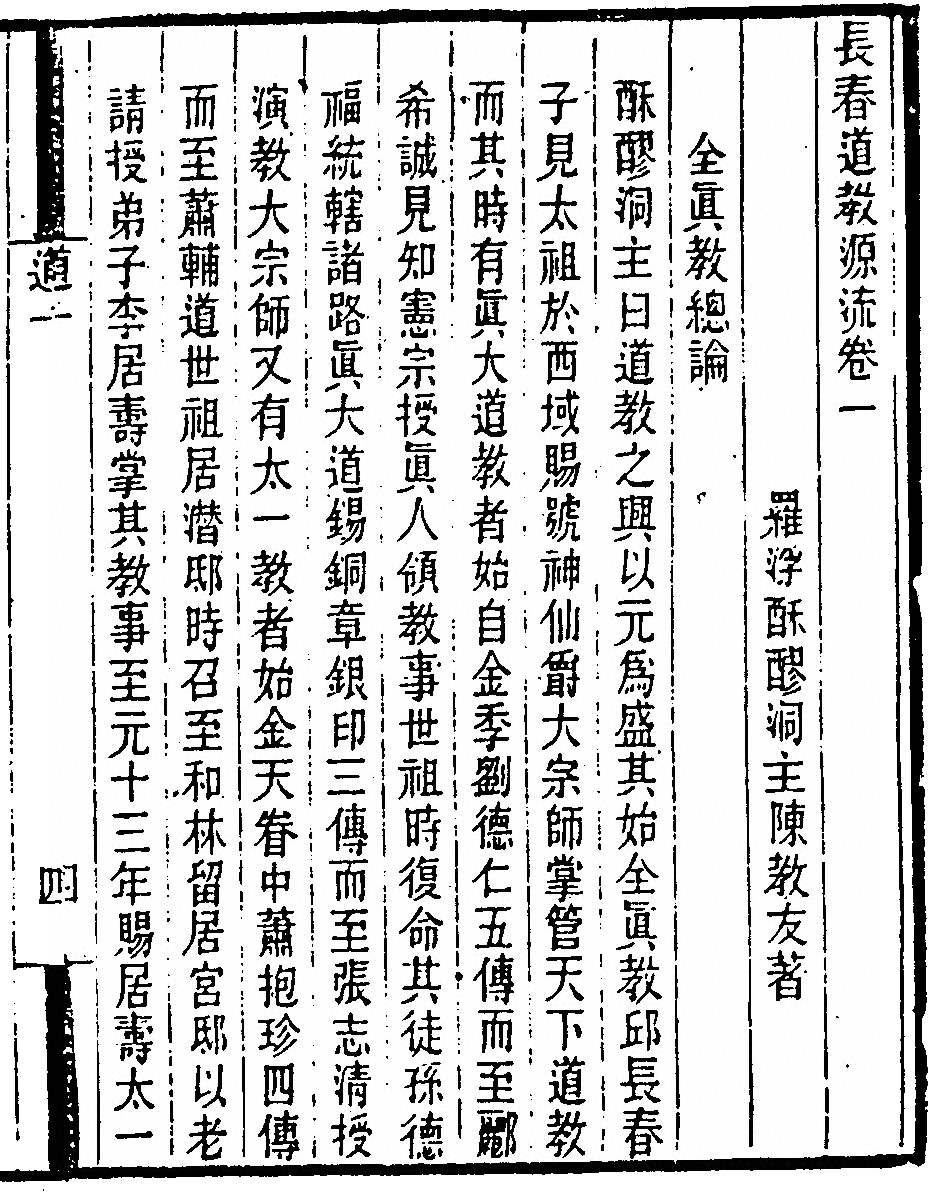 長春道教源流卷一
羅浮酥醪洞主陳教友著
全眞教總論
酥醪洞主曰道教之興以元爲盛其始全眞教邱長春
子見太祖於西域賜號神仙爵大宗師掌管天下道教
而其時有眞大道教者始自金季劉德仁五傳而至酈
希誠見知憲宗授眞人領教事世祖時復命其徒孫德
福統轄諸路眞大道錫銅章銀印三傳而至張志清授
演教大宗師又有太一教者始金天眷中蕭抱珍四傳
而至蕭輔道世祖居潛邸時召至和林留居宮邸以老
請授弟子李居壽掌其教事至元十三年賜居壽太一
道一
四